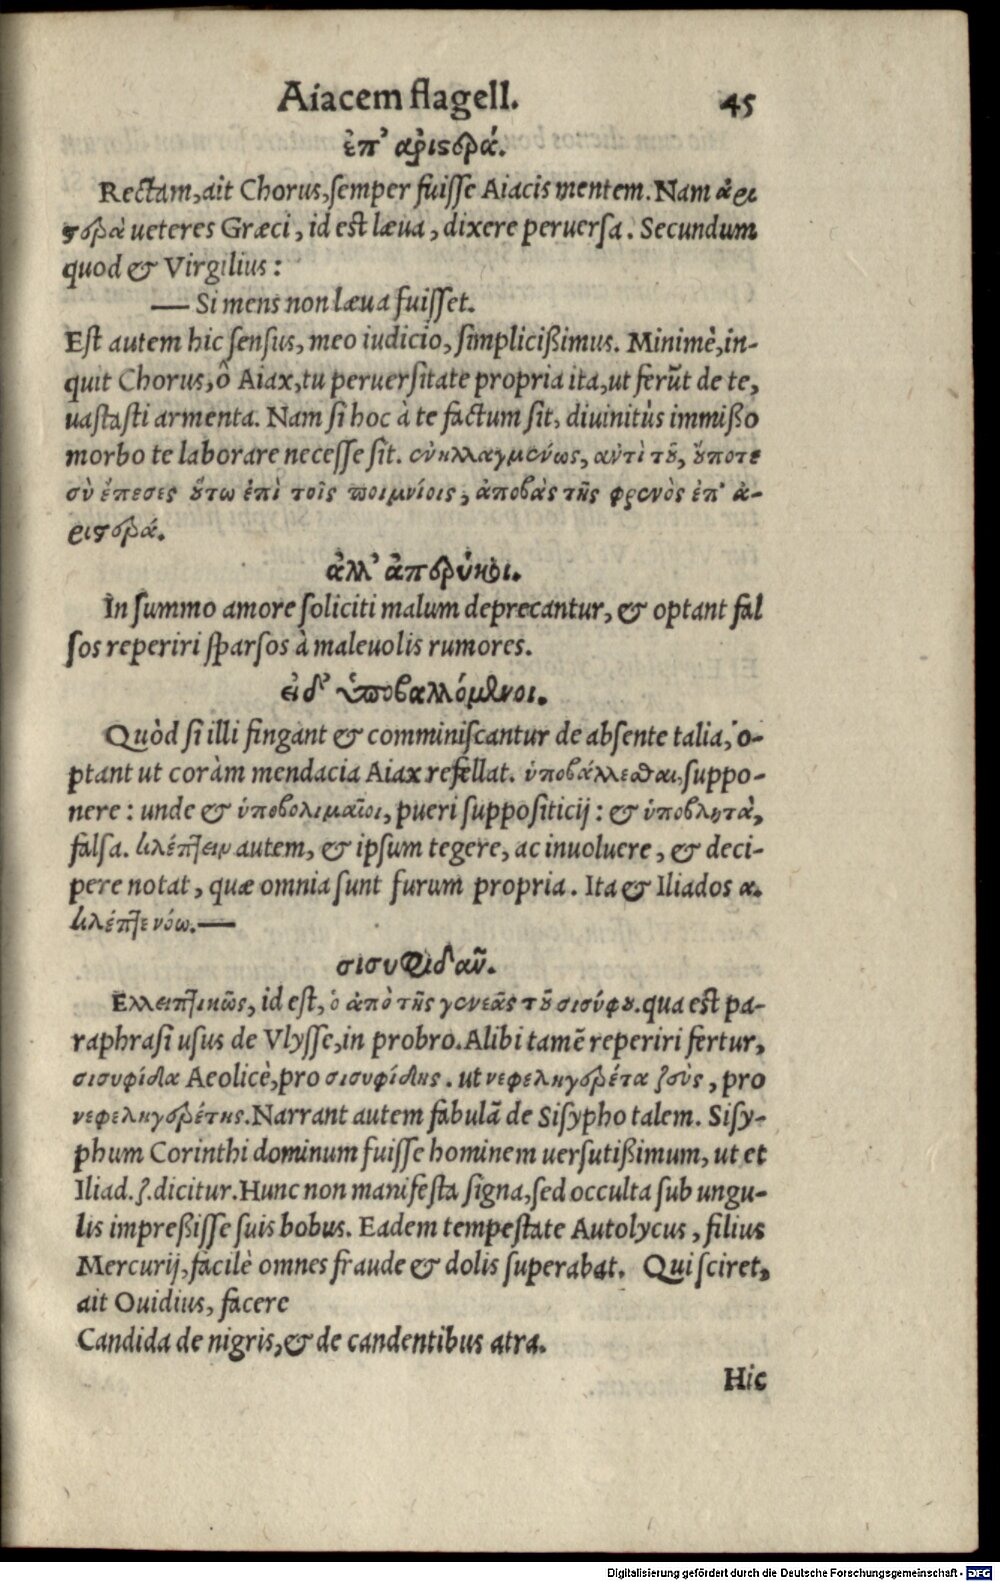 Aiacem flagell. 45
ἐπ' ἀριστερά.
Rectam, ait Chorus, semper fuisse Aiacis mentem. Nam ἀρι
στερὰ ueteres Græci, id est læua, dixere peruersa. Secundum
quod & Virgilius:
— Si mens non læua fuisset.
Est autem hic sensus, meo iudicio, simplicißimus. Minimè, in-
quit Chorus, ô Aiax, tu peruersitate propria ita, ut ferũt de te,
uastasti armenta. Nam si hoc à te factum sit, diuinitùs immißo
morbo te laborare necesse sit. ἐνηλλαγμένως, ἀντὶ τοῦ, οὔποτε
σὺ ἔπεσες οὕτω ἐπὶ τοῖς ποιμνίοις, ἀποβὰς τῆς φρενὸς ἐπ' ἀ-
ριστερά.
ἀλλ' ἀπερύκοι.
In summo amore soliciti malum deprecantur, & optant fal
sos reperiri sparsos à maleuolis rumores.
εἰ δ' ὑποβαλλόμενοι.
Quòd si illi fingant & comminiscantur de absente talia, o-
ptant ut coràm mendacia Aiax refellat. ὑποβάλλεσθαι, suppo-
nere: unde & ὑποβολιμαῖοι, pueri supposititij: & ὑποβλητὰ,
falsa. κλέπτειν autem, & ipsum tegere, ac inuoluere, & deci-
pere notat, quæ omnia sunt furum propria. Ita & Iliados α.
κλέπτε νόω. —
σισυφιδᾶν.
Ἐλλειπτικῶς, id est, ὁ ἀπὸ τῆς γενεᾶς τοῦ σισύφου. qua est pa-
raphrasi usus de Vlysse, in probro. Alibi tamẽ reperiri fertur,
σισυφίδα Aeolicè, pro σισυφίδης. ut νεφεληγερέτα ζεὺς, pro
νεφεληγερέτης. Narrant autem fabulã de Sisypho talem. Sisy-
phum Corinthi dominum fuisse hominem uersutißimum, ut et
Iliad. ζ. dicitur. Hunc non manifesta signa, sed occulta sub ungu-
lis impreßisse suis bobus. Eadem tempestate Autolycus, filius
Mercurij, facilè omnes fraude & dolis superabat. Qui sciret,
ait Ouidius, facere
Candida de nigris, & de candentibus atra.
Hic
Digitalisierung gefördert durch die Deutsche Forschungsgemeinschaft - DFG